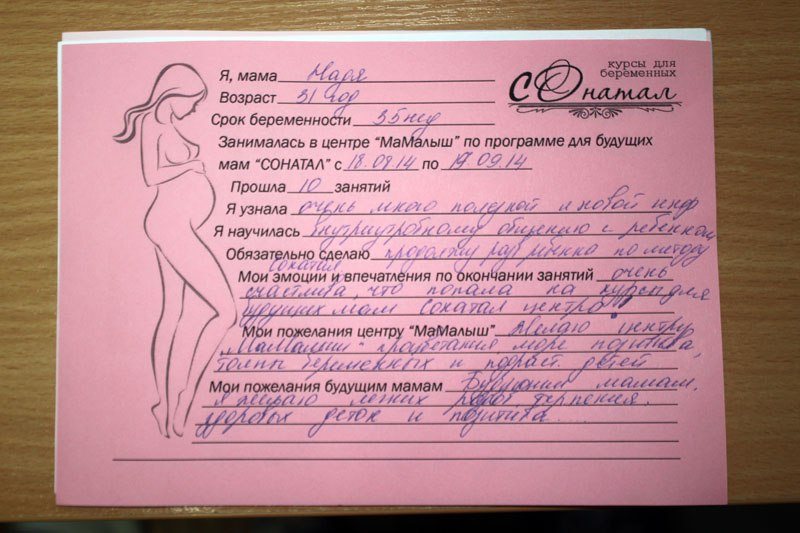 курсы для
беременных
СОнатал
Я, мама Надя
Возраст 31 год
Срок беременности 35 нед
Занималась в центре “МаМалыш” по программе для будущих
мам “СОНАТАЛ” с 18.08.14 по 19.09.14
Прошла 10 занятий
Я узнала очень много полезной и новой инф
Я научилась внутриутробному общению с ребенком
Обязательно сделаю продолжу разв ребенка по методу
сонатал
Мои эмоции и впечатления по окончании занятий очень
счастлива, что попала на курсы для
будущих мам Сонатал центра
Мои пожелания центру “МаМалыш” Желаю центру
"МаМалыш" процветания море позитива,
толпы беременных и подраст. детей
Мои пожелания будущим мамам Будущим мамам,
я желаю легких родов терпения,
здоровых деток и позитива....